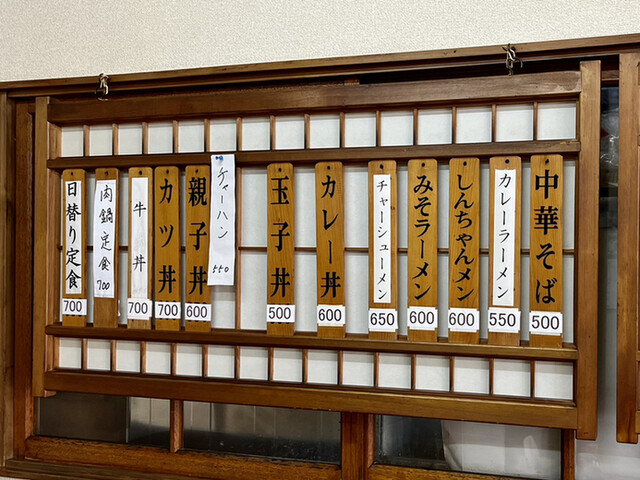 中華そば
500
カレーラーメン
550
しんちゃんメン
600
みそラーメン
600
チャーシューメン
650
カレー丼
600
玉子丼
500
チャーハン
550
親子丼
600
カツ丼
700
牛丼
700
肉鍋定食
700
日替り定食
700